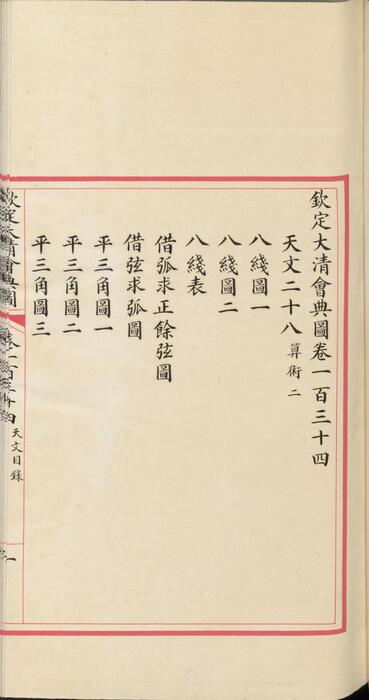 欽定大清會典圖卷一百三十四
天文二十八 算術二
八綫圖一
八綫圖二
八綫表
借弧求正餘弦圖
借弦求弧圖
平三角圖一
平三角圖二
平三角圖三
欽定大清會典圖
卷一百三十四
天文目錄
一